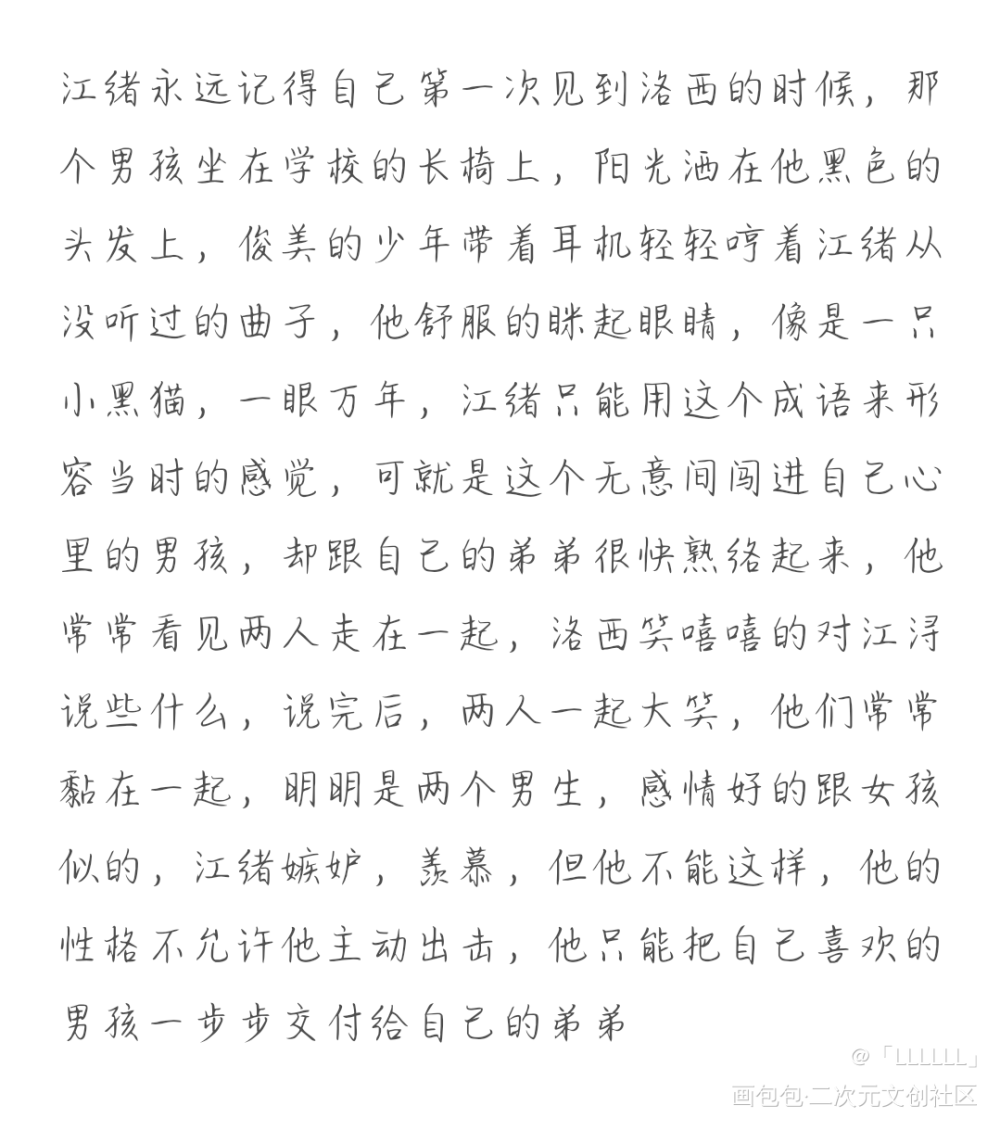 江绪永远记得自己第一次见到洛西的时候，那
个男孩坐在学校的长椅上，阳光洒在他黑色的
头发上，俊美的少年带着耳机轻轻哼着江绪从
没听过的曲子，他舒服的眯起眼睛，像是一只
小黑猫，一眼万年，江绪只能用这个成语来形
容当时的感觉，可就是这个无意间闯进自己心
里的男孩，却跟自己的弟弟很快熟络起来，他
常常看见两人走在一起，洛西笑嘻嘻的对江浔
说些什么，说完后，两人一起大笑，他们常常
黏在一起，明明是两个男生，感情好的跟女孩
似的，江绪嫉妒，羡慕，但他不能这样，他的
性格不允许他主动出击，他只能把自己喜欢的
男孩一步步交付给自己的弟弟
@「LLLLLL」
画包包·二次元文创社区